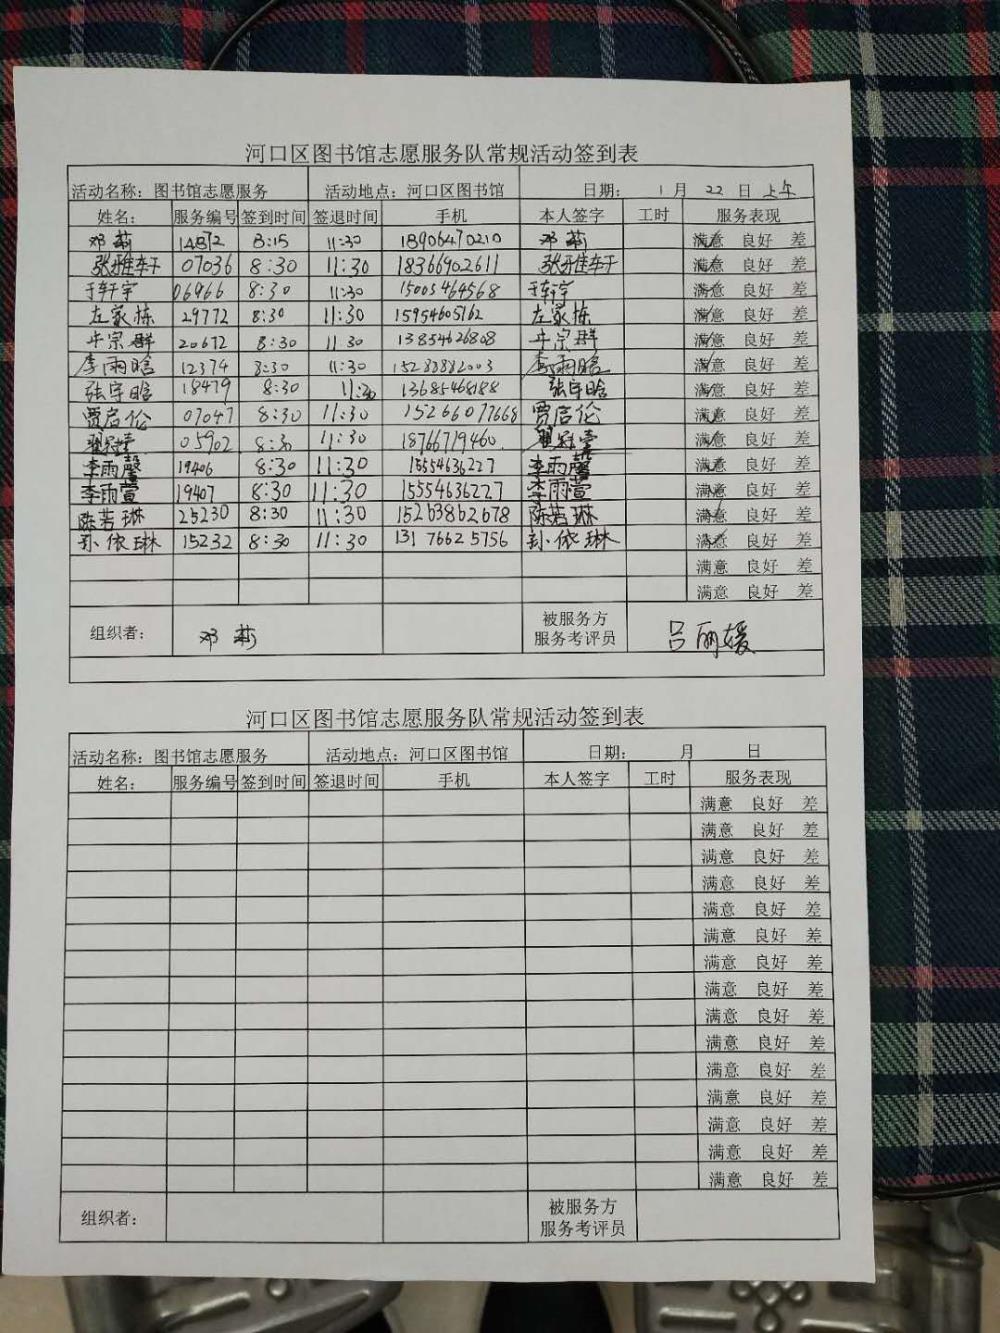 河口区图书馆志愿服务队常规活动签到表
活动名称：图书馆志愿服务 活动地点：河口区图书馆 日期： 1 月 22 日 上午
姓名： 服务编号 签到时间 签退时间 手机 本人签字 工时 服务表现
邓莉 14872 8:15 11:30 18906470210 邓莉 满意 良好 差
张雅轩 07036 8:30 11:30 18366902611 张雅轩 满意 良好 差
于轩宇 06966 8:30 11:30 15005464568 于轩宇 满意 良好 差
左家栋 29772 8:30 11:30 15954605162 左家栋 满意 良好 差
牛宗群 20672 8:30 11:30 13854626808 牛宗群 满意 良好 差
李雨晗 12374 8:30 11:30 15288882003 李雨晗 满意 良好 差
张宇晗 18479 8:30 11:30 13685468188 张宇晗 满意 良好 差
贾启伦 07047 8:30 11:30 15266077668 贾启伦 满意 良好 差
05902 8:30 11:30 18766719460 满意 良好 差
李雨馨 19406 8:30 11:30 15554636227 李雨馨 满意 良好 差
李雨萱 19407 8:30 11:30 15554636227 李雨萱 满意 良好 差
陈若琳 25230 8:30 11:30 15263862678 陈若琳 满意 良好 差
孙依琳 15232 8:30 11:30 13176625756 孙依琳 满意 良好 差
满意 良好 差
满意 良好 差
组织者： 邓莉 被服务方 服务考评员 吕丽媛
河口区图书馆志愿服务队常规活动签到表
活动名称：图书馆志愿服务 活动地点：河口区图书馆 日期： 月 日
姓名： 服务编号 签到时间 签退时间 手机 本人签字 工时 服务表现
满意 良好 差
满意 良好 差
满意 良好 差
满意 良好 差
满意 良好 差
满意 良好 差
满意 良好 差
满意 良好 差
满意 良好 差
满意 良好 差
满意 良好 差
满意 良好 差
满意 良好 差
满意 良好 差
满意 良好 差
组织者： 被服务方 服务考评员